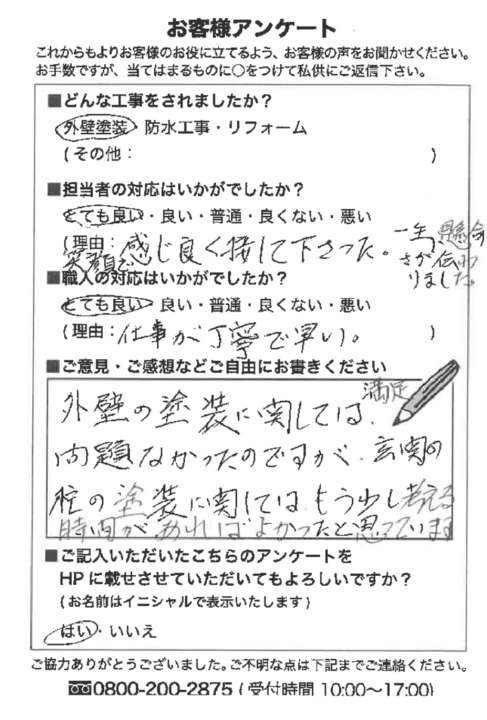 お客様アンケート
これからもよりお客様のお役に立てるよう、お客様の声をお聞かせください。
お手数ですが、当てはまるものに○をつけて私供にご返信下さい。
■どんな工事をされましたか?
外壁塗装・防水工事・リフォーム
(その他: )
■担当者の対応はいかがでしたか?
とても良い・良い・普通・良くない・悪い
(理由:感じ良く接して下さった。
笑顔で
一生懸命
さが伝わ
りました。
■職人の対応はいかがでしたか?
とても良い・良い・普通・良くない・悪い
(理由:仕事が丁寧で早い。 )
■ご意見・ご感想などご自由にお書きください
外壁の塗装に関しては、満足
問題なかったのですが、玄関の
柱の塗装に関しては、もう少し考える
時間があればよかったと思っています
■ご記入いただいたこちらのアンケートを
HPに載せさせていただいてもよろしいですか?
(お名前はイニシャルで表示いたします)
はい・いいえ
ご協力ありがとうございました。ご不明な点は下記までご連絡ください。
0800-200-2875(受付時間 10:00〜17:00)